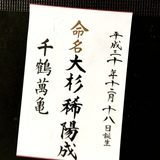 平成二十年十二月十八日誕生
命名大杉稀陽成
千鶴萬亀